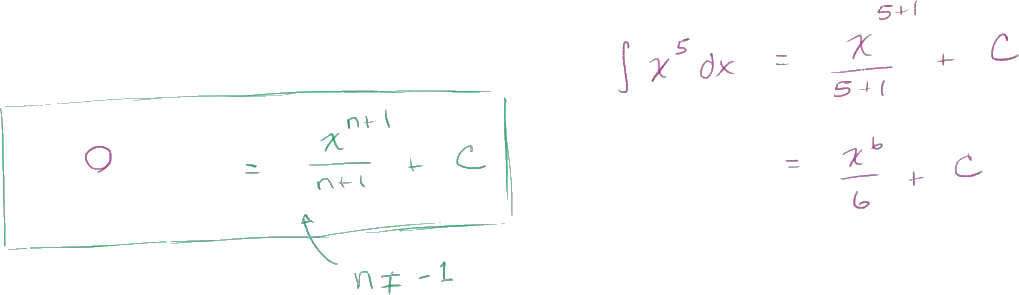 O = x^{n+1}/(n+1) + C
n ≠ -1
∫ x^5 dx = x^{5+1}/(5+1) + C
= x^6/6 + C